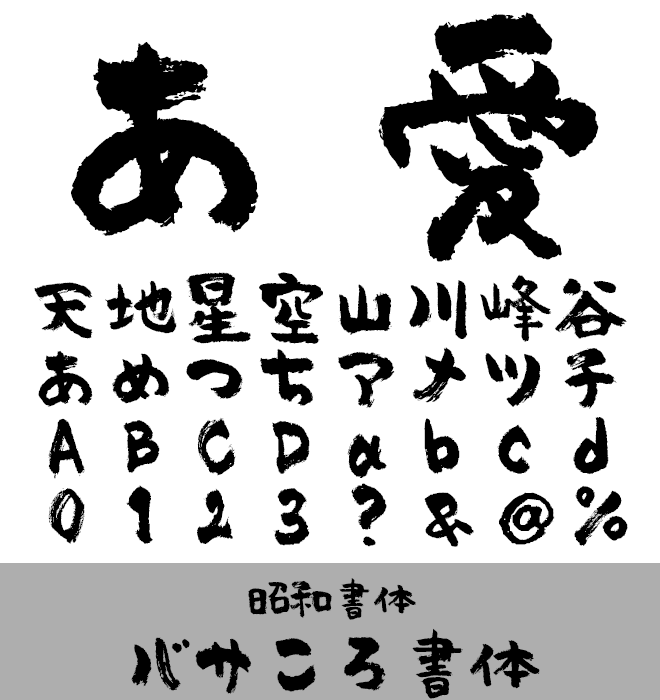 あ 愛
天地星空山川峰谷
あめつちアメツチ
ABCDabcd
0123?&@%
昭和書体
バサころ書体